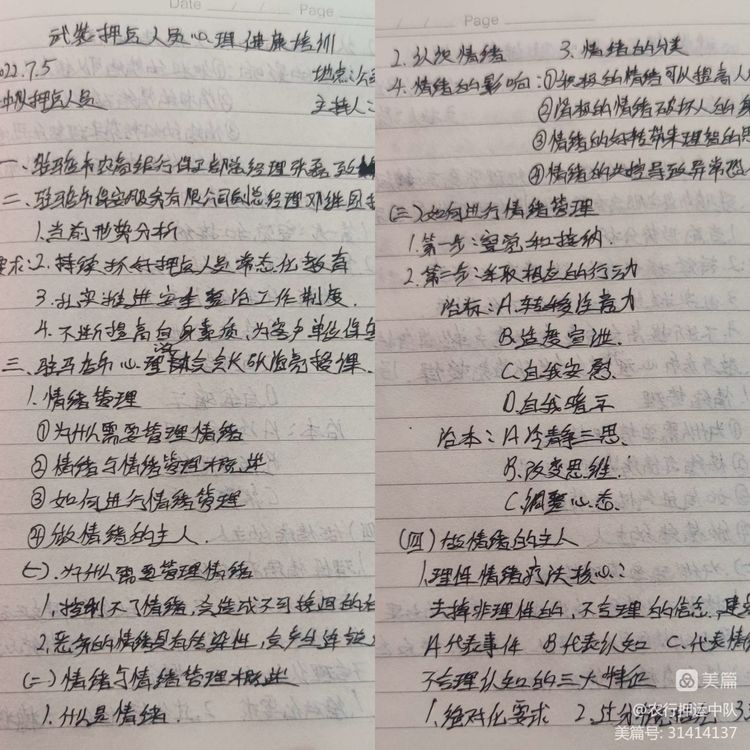 Date Page
武装押运人员心理健康培训
2022.7.5 地点:公
中队押运人员 主持人:
一、驻马店市农商银行保卫部总经理张磊致
二、驻马店市保安服务有限公司副总经理邓继国
1.当前形势分析
要求:2.持续抓好押运人员常态化教育
3.扎实推进安全整治工作制度.
4.不断提高自身素质,为客户单位保
三、驻马店市心理 会会长 授课.
1.情绪管理
①为什么需要管理情绪
②情绪与情绪管理概述
③如何进行情绪管理
④做情绪的主人.
(一).为什么需要管理情绪
1.控制不了情绪,会造成不可挽回的
2.恶劣的情绪具有传染性,会产生连锁
(二)情绪与情绪管理概述
1.什么是情绪.
Page
2.认识情绪 3.情绪的分类
4.情绪的影响:①积极的情绪可以提高人
②消极的情绪破坏人的
③情绪的好转带来理智的思
④情绪的失控导致异常
(三)如何进行情绪管理
1.第一步:察觉和接纳.
2.第二步:采取相应的行动
治标:A.转移注意力
B.适度宣泄.
C.自我安慰
D.自我暗示
治本:A冷静三思.
B.改变思维.
C.调整心态.
(四)做情绪的主人
1.理性情绪疗法核心:
去掉非理性的,不合理的信念,建
A代表事件 B代表认知 C.代表情
不合理认知的三大特征
1.绝对化要求 2.过分概括化 3.
美篇
@农行押运中队
美篇号: 31414137